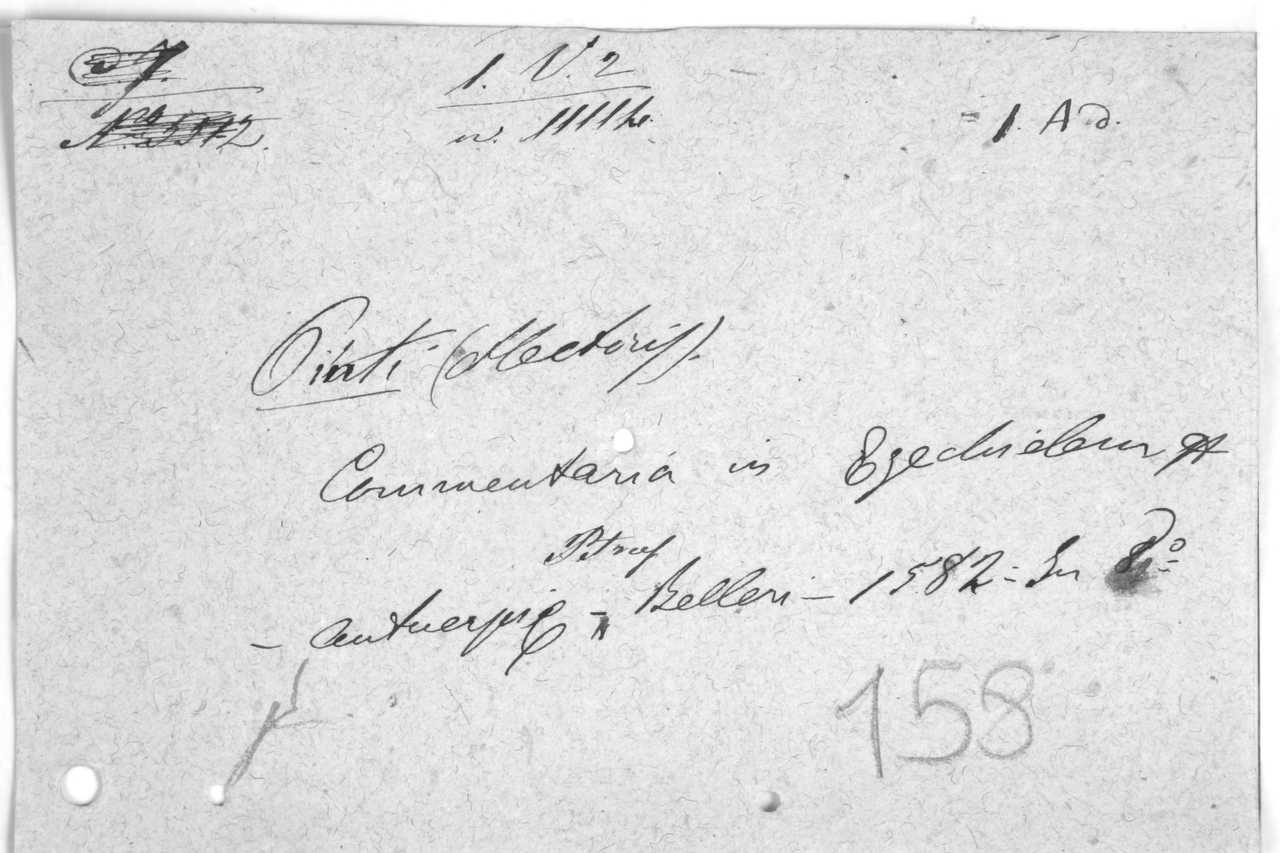 1. V. 2
= 1. A d.
Pinti (Hectoris).
Commentaria in Ezechielem
Petrus
- Antuerpię - Belleri - 1582 - In 8º
158